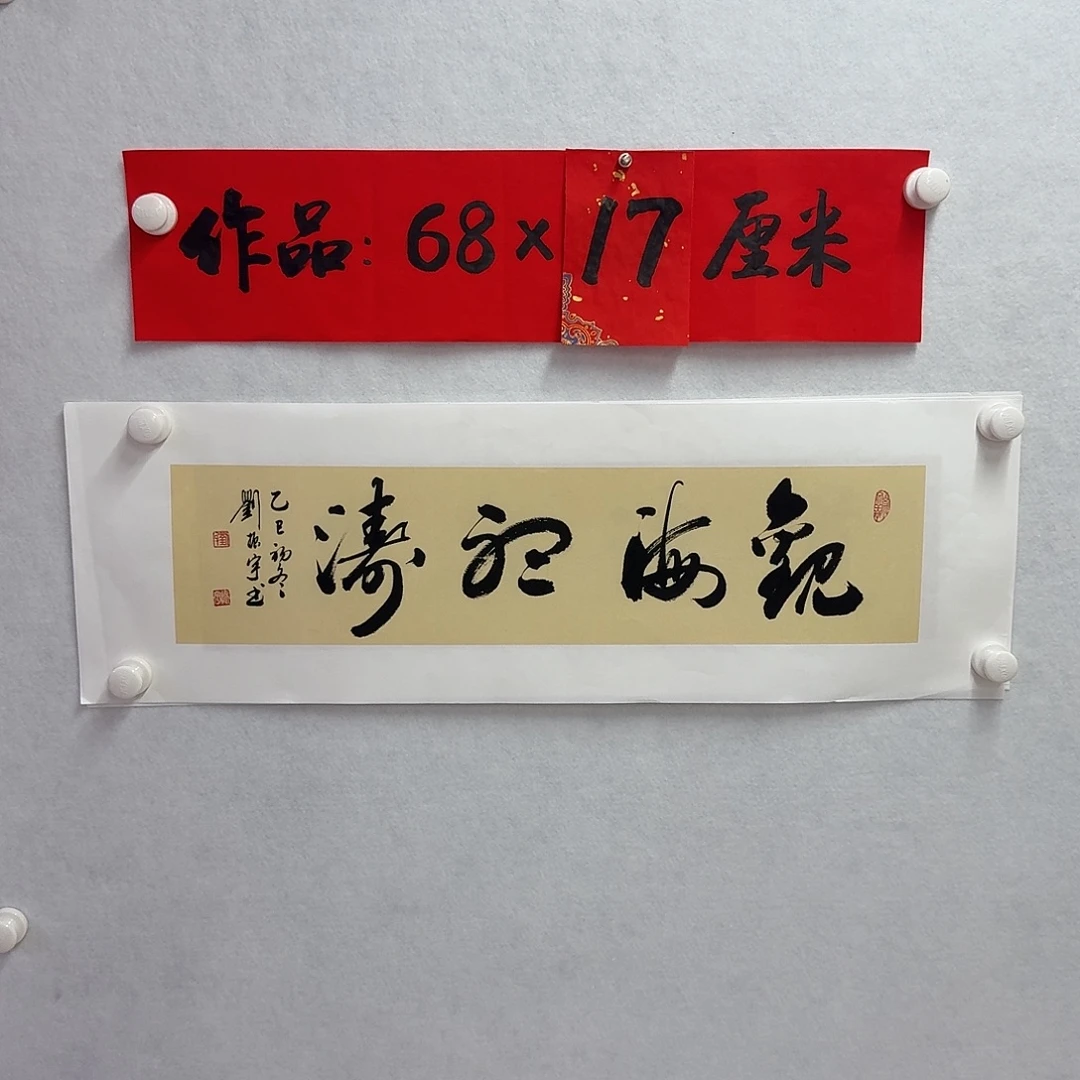 作品：68×17厘米
觀海聽濤
乙巳初冬
劉振宇书